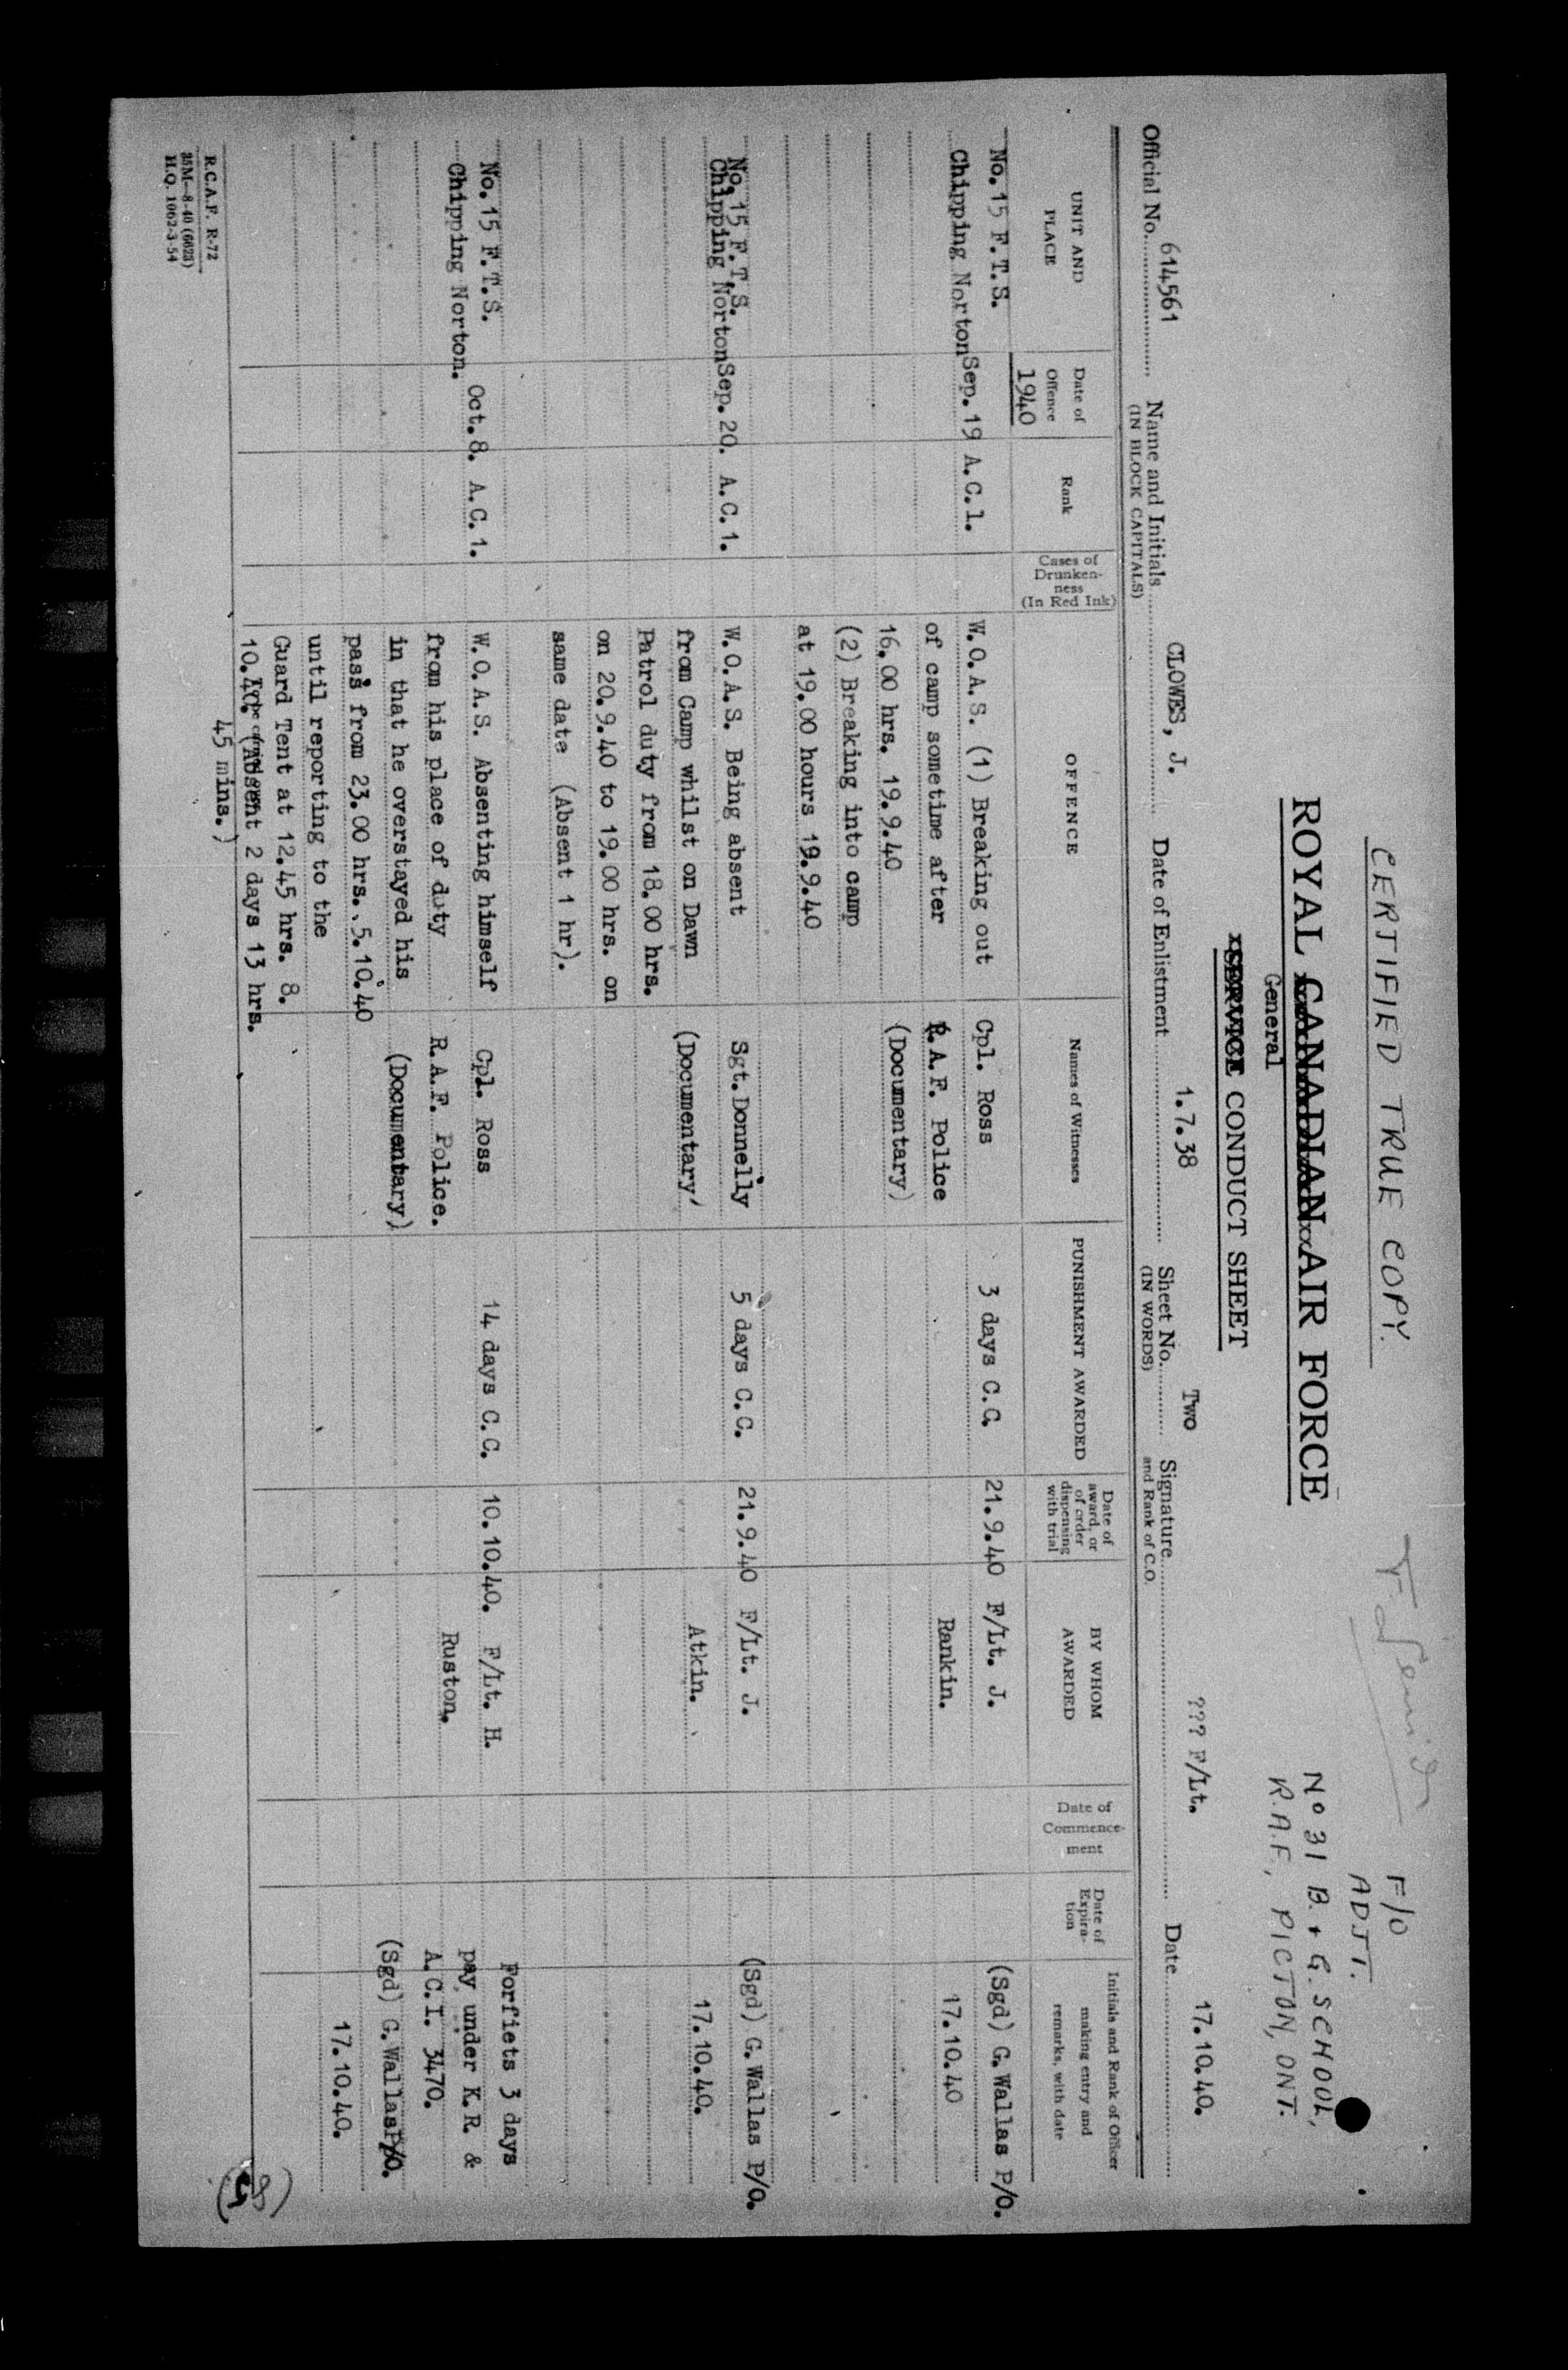 CERTIFIED TRUE COPY.
F/O
ADJT.
No 31 B. & G. SCHOOL,
R.A.F., PICTON, ONT.
ROYAL CANADIAN AIR FORCE
General
SERVICE CONDUCT SHEET
Official No. 614561 Name and Initials CLOWES, J. Date of Enlistment 1.7.38 Sheet No. Two Signature ??? F/Lt. Date 17.10.40.
(IN BLOCK CAPITALS) (IN WORDS) and Rank of C.O.
UNIT AND PLACE
Date of Offence
Rank
Cases of Drunken-ness (In Red Ink)
OFFENCE
Names of Witnesses
PUNISHMENT AWARDED
Date of award, or of order dispensing with trial
BY WHOM AWARDED
Date of Commence-ment
Date of Expira-tion
Initials and Rank of Officer making entry and remarks, with date
1940
No.15 F.T.S.
Chipping Norton Sep.19 A.C.1. W.O.A.S. (1) Breaking out Cpl. Ross 3 days C.C. 21.9.40 F/Lt. J. (Sgd) G.Wallas P/O.
of camp sometime after R.A.F. Police Rankin. 17.10.40
16.00 hrs. 19.9.40 (Documentary)
(2) Breaking into camp
at 19.00 hours 19.9.40
No.15 F.T.S.
Chipping Norton Sep.20. A.C.1. W.O.A.S. Being absent Sgt.Donnelly 5 days C.C. 21.9.40 F/Lt. J. (Sgd) G.Wallas P/O.
from Camp whilst on Dawn (Documentary) Atkin. 17.10.40.
Patrol duty from 18.00 hrs.
on 20.9.40 to 19.00 hrs. on
same date (Absent 1 hr).
No.15 F.T.S. Forfiets 3 days
Chipping Norton. Oct.8. A.C.1. W.O.A.S. Absenting himself Cpl. Ross 14 days C.C. 10.10.40. F/Lt. H. pay under K.R. &
from his place of duty R.A.F. Police. Ruston. A.C.I. 3470.
in that he overstayed his (Documentary) (Sgd) G.Wallas P/O.
pass from 23.00 hrs. 5.10.40 17.10.40.
until reporting to the
Guard Tent at 12.45 hrs. 8.
10.40. (Absent 2 days 13 hrs.
45 mins.)
R.C.A.F. R-72
25M-8-40 (6623)
H.Q. 1062-3-54